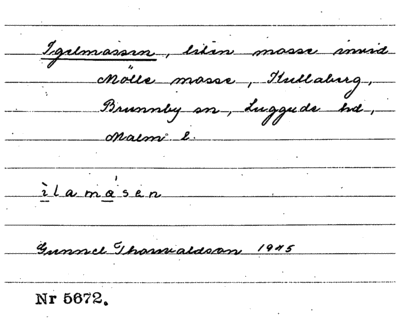 Igelmossen, liten mosse invid
Mölle mosse, Kullaberg,
Brunnby sn, Luggude hd,
Malm. l.
ìlamósen
Gunnel Thorvaldson 1975
Nr 5672.